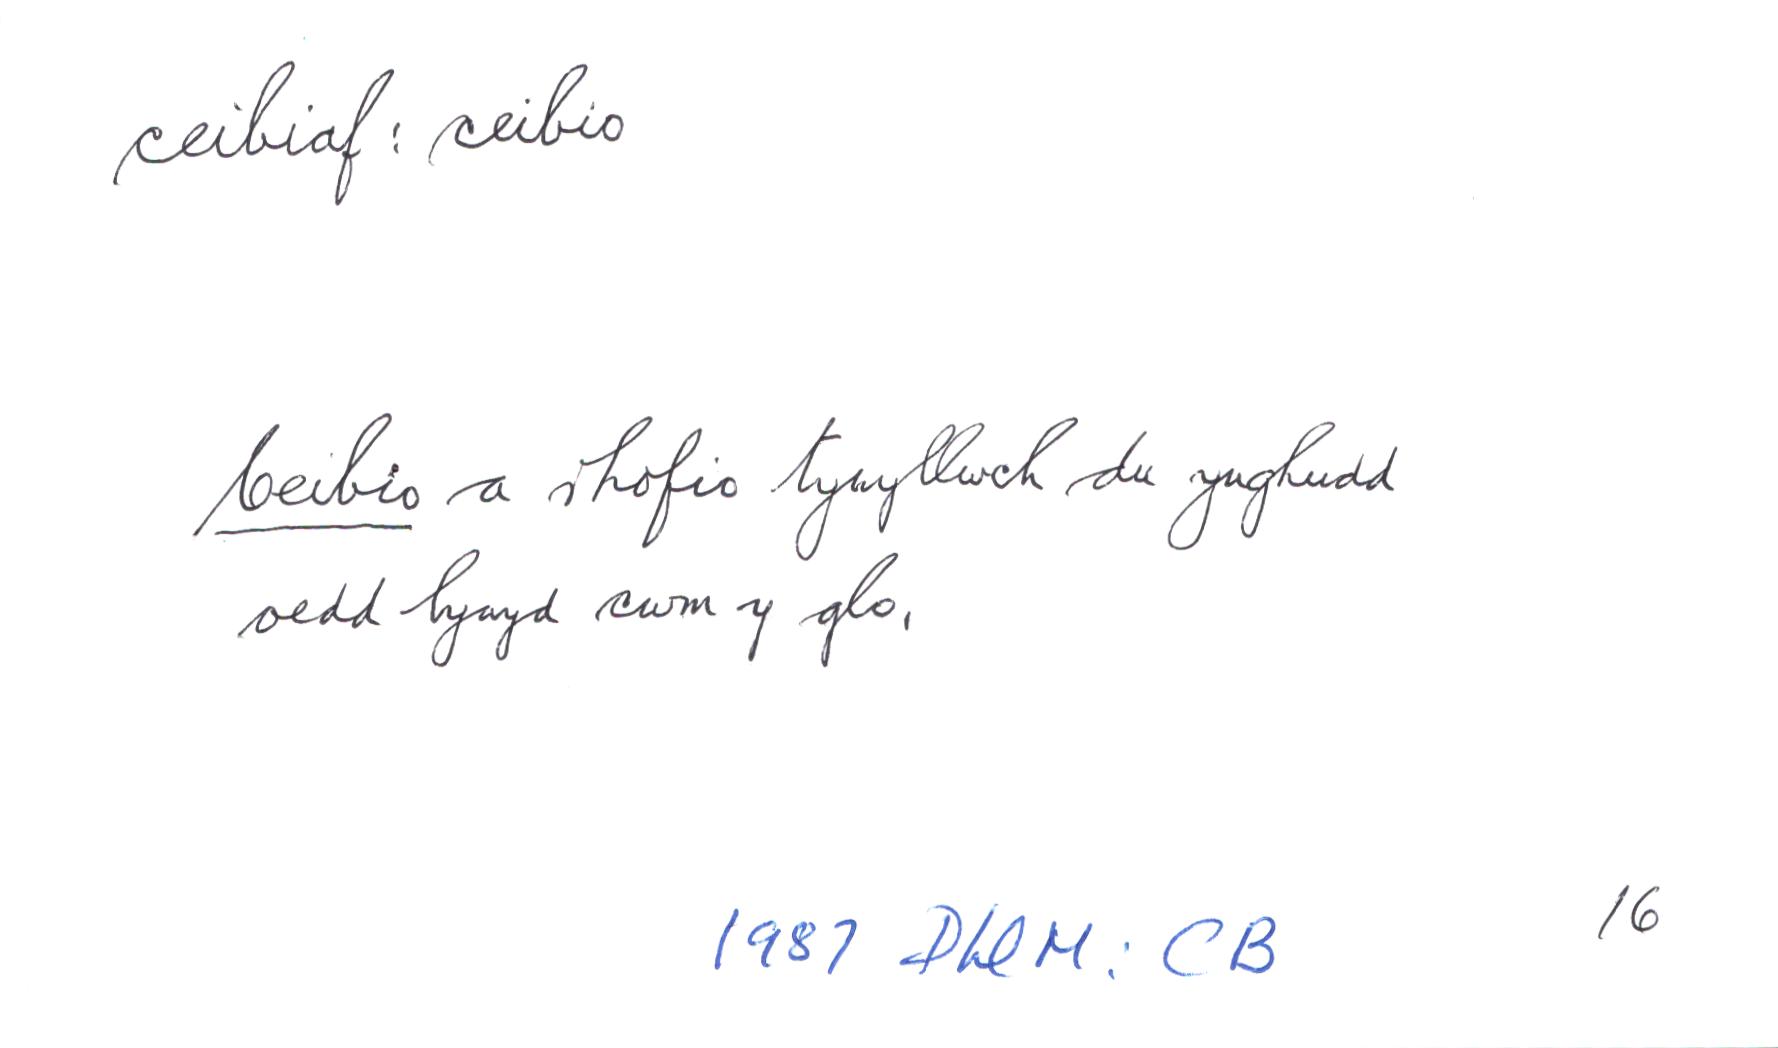 ceibiaf: ceibio
Ceibio a rhofio tywyllwch du ynghudd
oedd bywyd cwm y glo.
1987 DHLM: CB
16